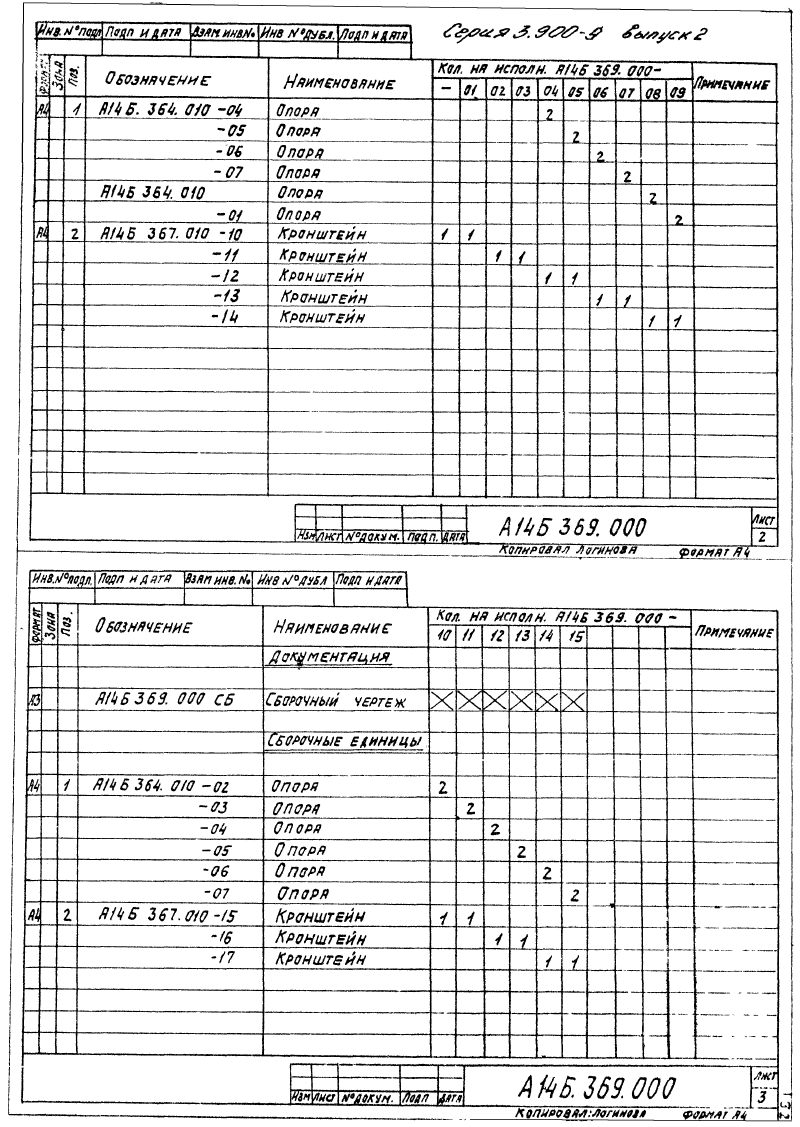 Серия 3.900-9 Выпуск 2
Инв. № подл Подп и дата Взам инв № Инв № дубл. Подп и дата
Формат Зона Поз. Обозначение Наименование Кол. на исполн. А14Б 369.000- Примечание
- 01 02 03 04 05 06 07 08 09
А4 1 А14Б. 364.010 -04 Опора 2
-05 Опора 2
-06 Опора 2
-07 Опора 2
А14Б 364.010 Опора 2
-01 Опора 2
А4 2 А14Б 367.010 -10 Кронштейн 1 1
-11 Кронштейн 1 1
-12 Кронштейн 1 1
-13 Кронштейн 1 1
-14 Кронштейн 1 1
Изм Лист № докум. Подп. Дата А14Б 369.000 Лист 2
Копировал Логинова Формат А4
Инв. № подл. Подп и дата Взам инв. № Инв № дубл Подп и дата
Формат Зона Поз. Обозначение Наименование Кол. на исполн. А14Б 369.000 - Примечание
10 11 12 13 14 15
Документация
А3 А14Б 369.000 СБ Сборочный чертеж X X X X X X
Сборочные единицы
А4 1 А14Б 364.010 -02 Опора 2
-03 Опора 2
-04 Опора 2
-05 Опора 2
-06 Опора 2
-07 Опора 2
А4 2 А14Б 367.010 -15 Кронштейн 1 1
-16 Кронштейн 1 1
-17 Кронштейн 1 1
Изм Лист № докум. Подп Дата А14Б. 369.000 Лист 3
Копировал: Логинова Формат А4